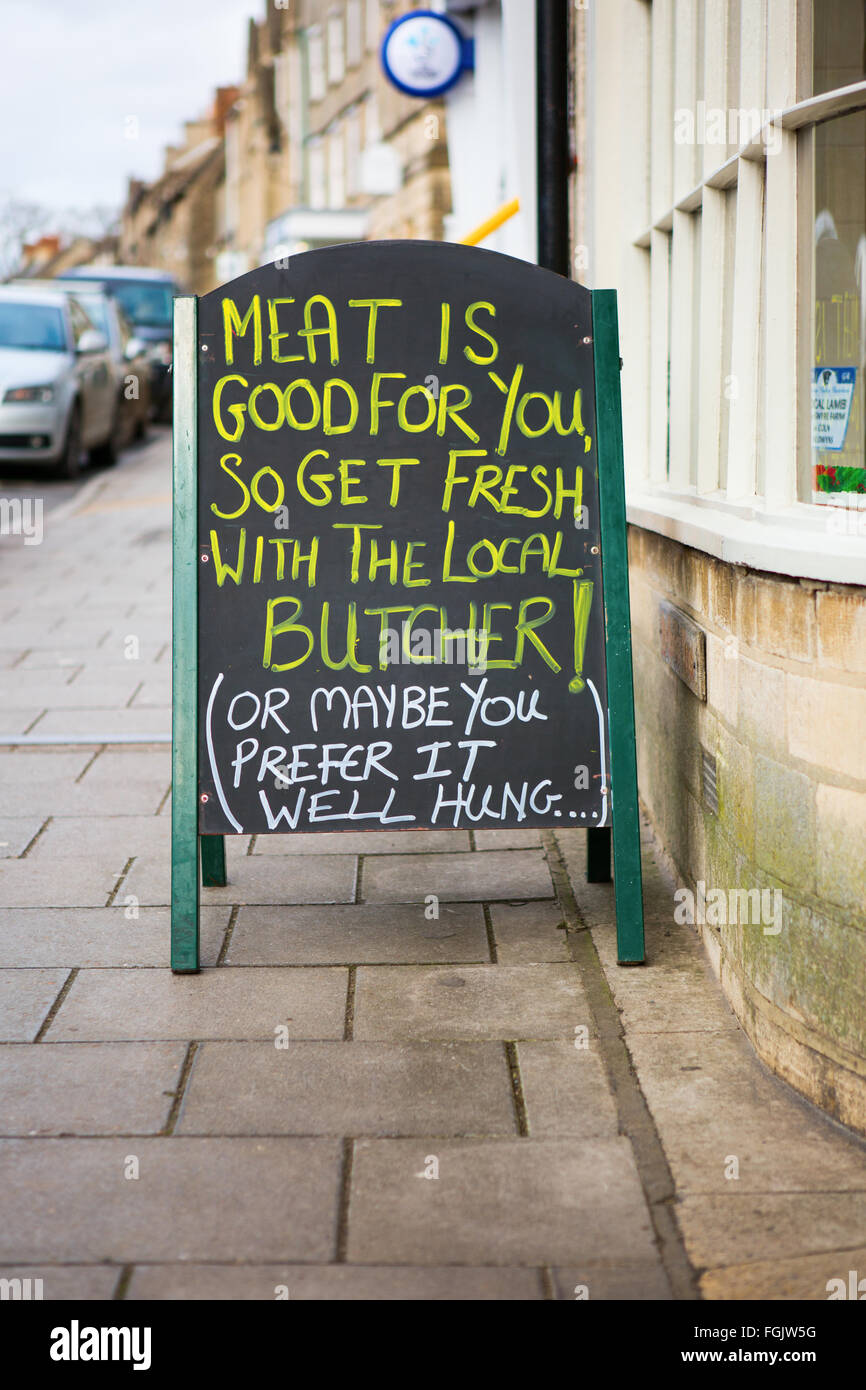 MEAT IS
GOOD FOR YOU,
SO GET FRESH
WITH THE LOCAL
BUTCHER!
(OR MAYBE YOU
PREFER IT
WELL HUNG....)
alamy
alamy
Image ID: FGJW5G
www.alamy.com